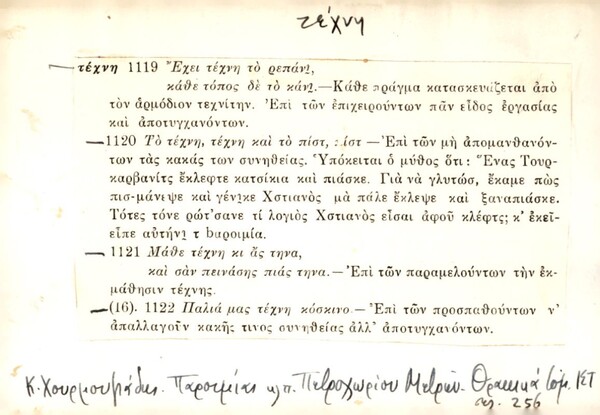 τέχνη
τέχνη 1119 Ἔχει τέχνη τὸ ρεπάνι,
κάθε τόπος δὲ τὸ κάνι.—Κάθε πρᾶγμα κατασκευάζεται ἀπὸ
τὸν ἁρμόδιον τεχνίτην. Ἐπὶ τῶν ἐπιχειρούντων πᾶν εἶδος ἐργασίας
καὶ ἀποτυγχανόντων.
1120 Τὸ τέχνη, τέχνη καὶ τὸ πίστ, πίστ —Ἐπὶ τῶν μὴ ἀπομανθανόν-
των τὰς κακάς των συνηθείας. Ὑπόκειται ὁ μύθος ὅτι: Ἕνας Τουρ-
καρβανίτς ἔκλεφτε κατσίκια καὶ πιάσκε. Γιὰ νὰ γλυτώσ, ἔκαμε πὼς
πισ-μάνεψε καὶ γένικε Χστιανὸς μὰ πάλε ἔκλεψε καὶ ξαναπιάσκε.
Τότες τόνε ρώτ'σανε τί λογιὸς Χστιανὸς εἶσαι ἀφοῦ κλέφτς; κ' ἐκεῖ-
εἶπε αὐτήνι τ bαροιμία.
1121 Μάθε τέχνη κι ἄς τηνα,
καὶ σὰν πεινάσης πιάς τηνα.—Ἐπὶ τῶν παραμελούντων τὴν ἐκ-
μάθησιν τέχνης.
(16). 1122 Παλιά μας τέχνη κόσκινο.—Ἐπὶ τῶν προσπαθούντων ν'
ἀπαλλαγοῦν κακῆς τινος συνηθείας ἀλλ' ἀποτυγχανόντων.
Κ. Χουρμουζιάδης. Παροιμίαι κλπ. Πετροχωρίου Μετρῶν. Θρακικά τόμ. ΚΣΤ
σελ. 256